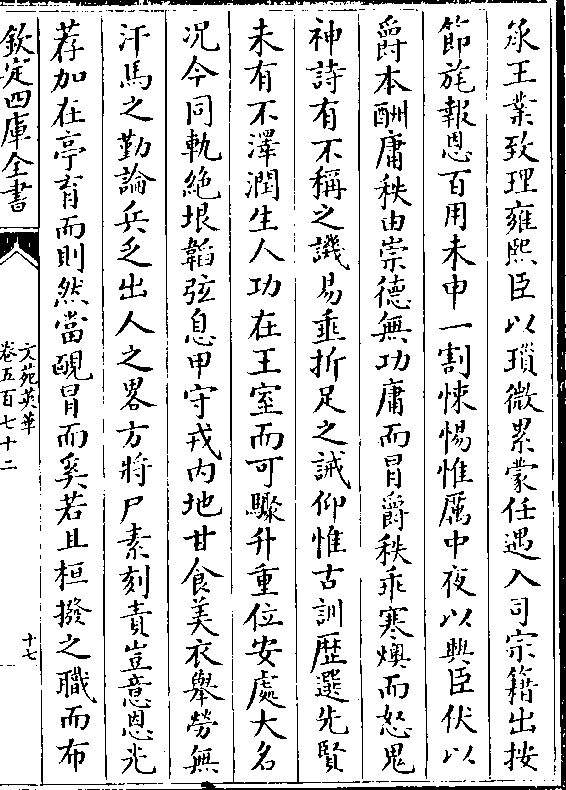 承王業致理雍熙臣以瑣微累蒙任遇入司宗籍出按
節旄報恩百用未申一割悚惕惟厲中夜以興臣伏以
爵本酬庸秩由崇德無功庸而冒爵秩乖寒燠而怒鬼
神詩有不稱之譏易垂折足之誡仰惟古訓歴選先賢
未有不澤潤生人功在王室而可驟升重位安處大名
况今同軌絶垠韜弦息甲守戎内地甘食美衣舉勞無
汗馬之勤論兵乏出人之畧方將尸素刻責豈意恩光
荐加在亭育而則然當靦冒而奚若且桓撥之職而布
欽定四庫全書
文苑英華
卷五百七十二
十七